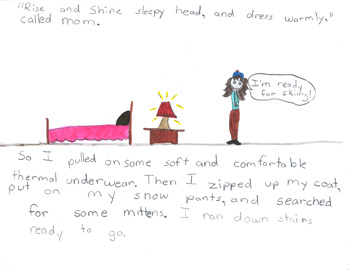 "Rise and Shine sleepy head, and dress warmly."
called mom.
I'm ready
for skiing!
So I pulled on some soft and comfortable
thermal underwear. Then I zipped up my coat,
put on my snow pants, and searched
for some mittens. I ran down stairs
ready to go.